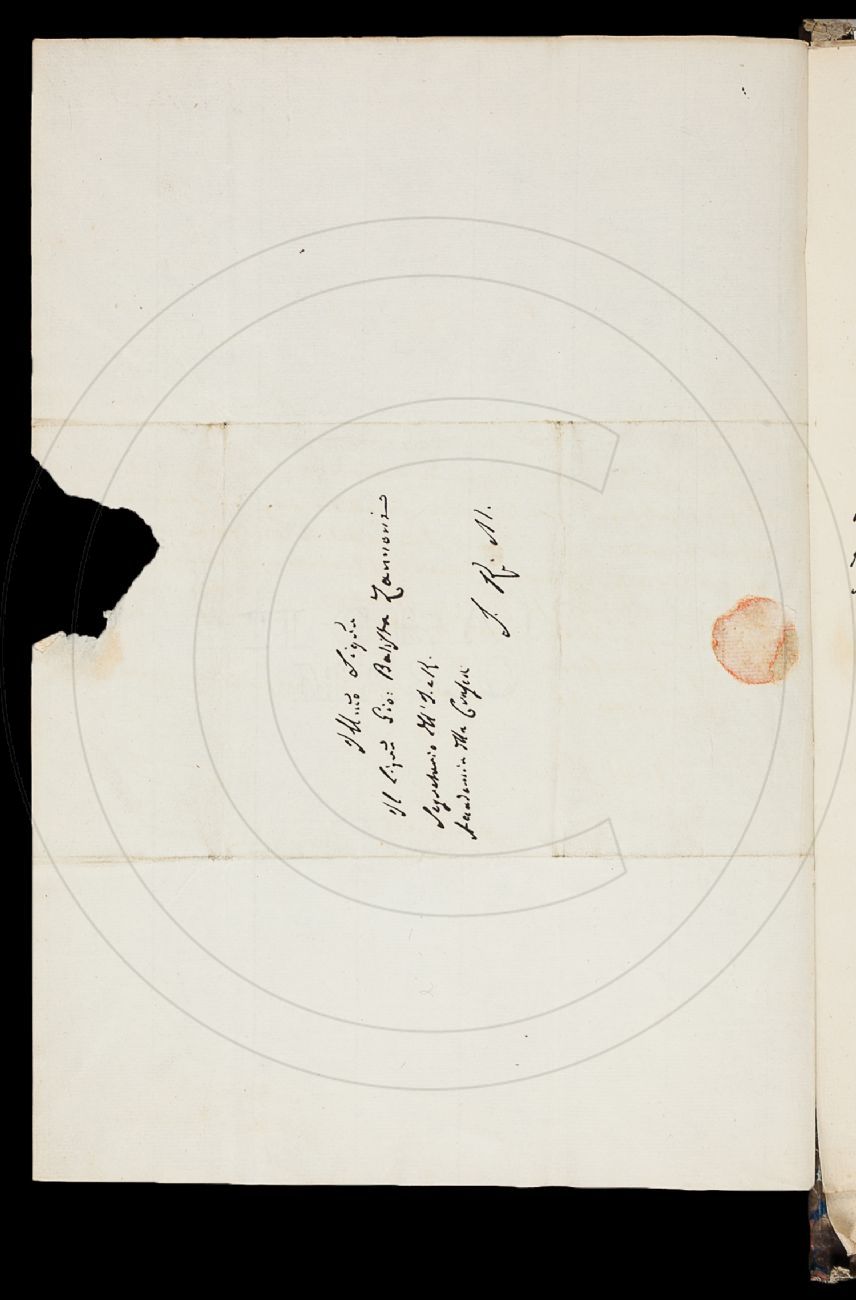 Illmo Sigre
Il Sigre Gio: Batista Zannoni
Segretario dell' I. e R.
Accademia della Crusca
S. R. M.